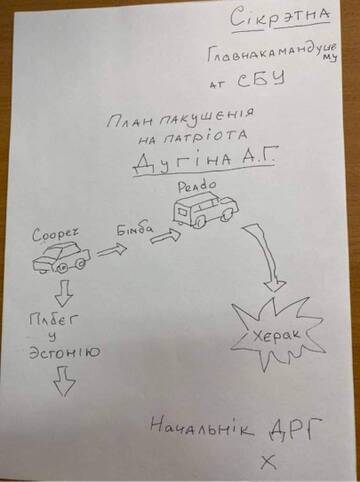 Сікрэтна
Главнакамандуще
му
ат СБУ
План пакушенія
на патріота
Дугіна А.Г.
Рендо
Cooper
Бімба
Пабєг
у
Эстонію
Херак
Начальнік ДРГ
Х